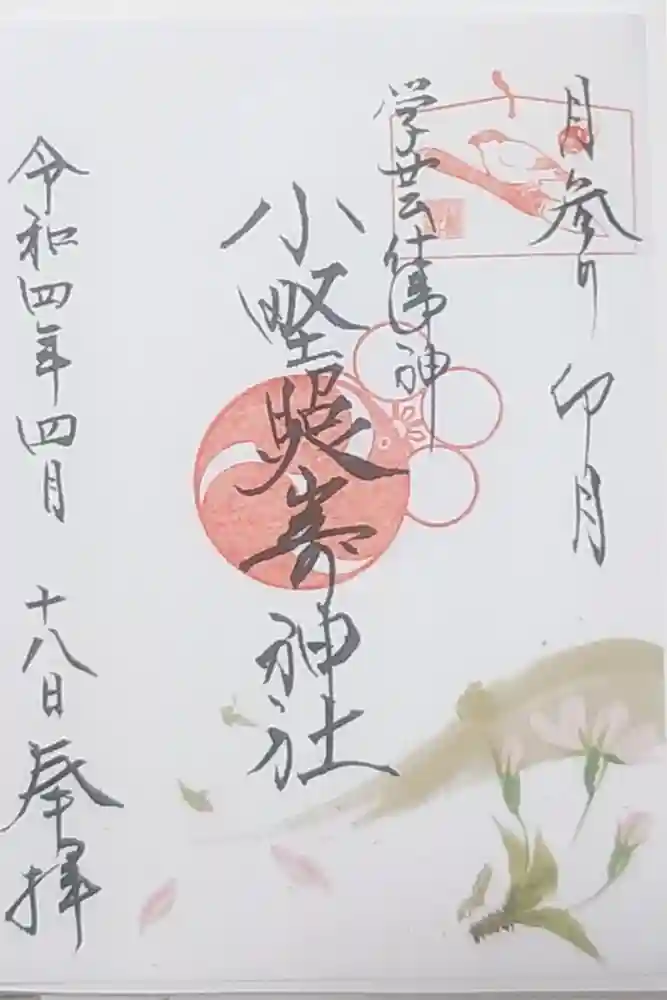 月参り 卯月
学芸仕事神
小野照崎神社
令和四年四月 十八日 奉拝